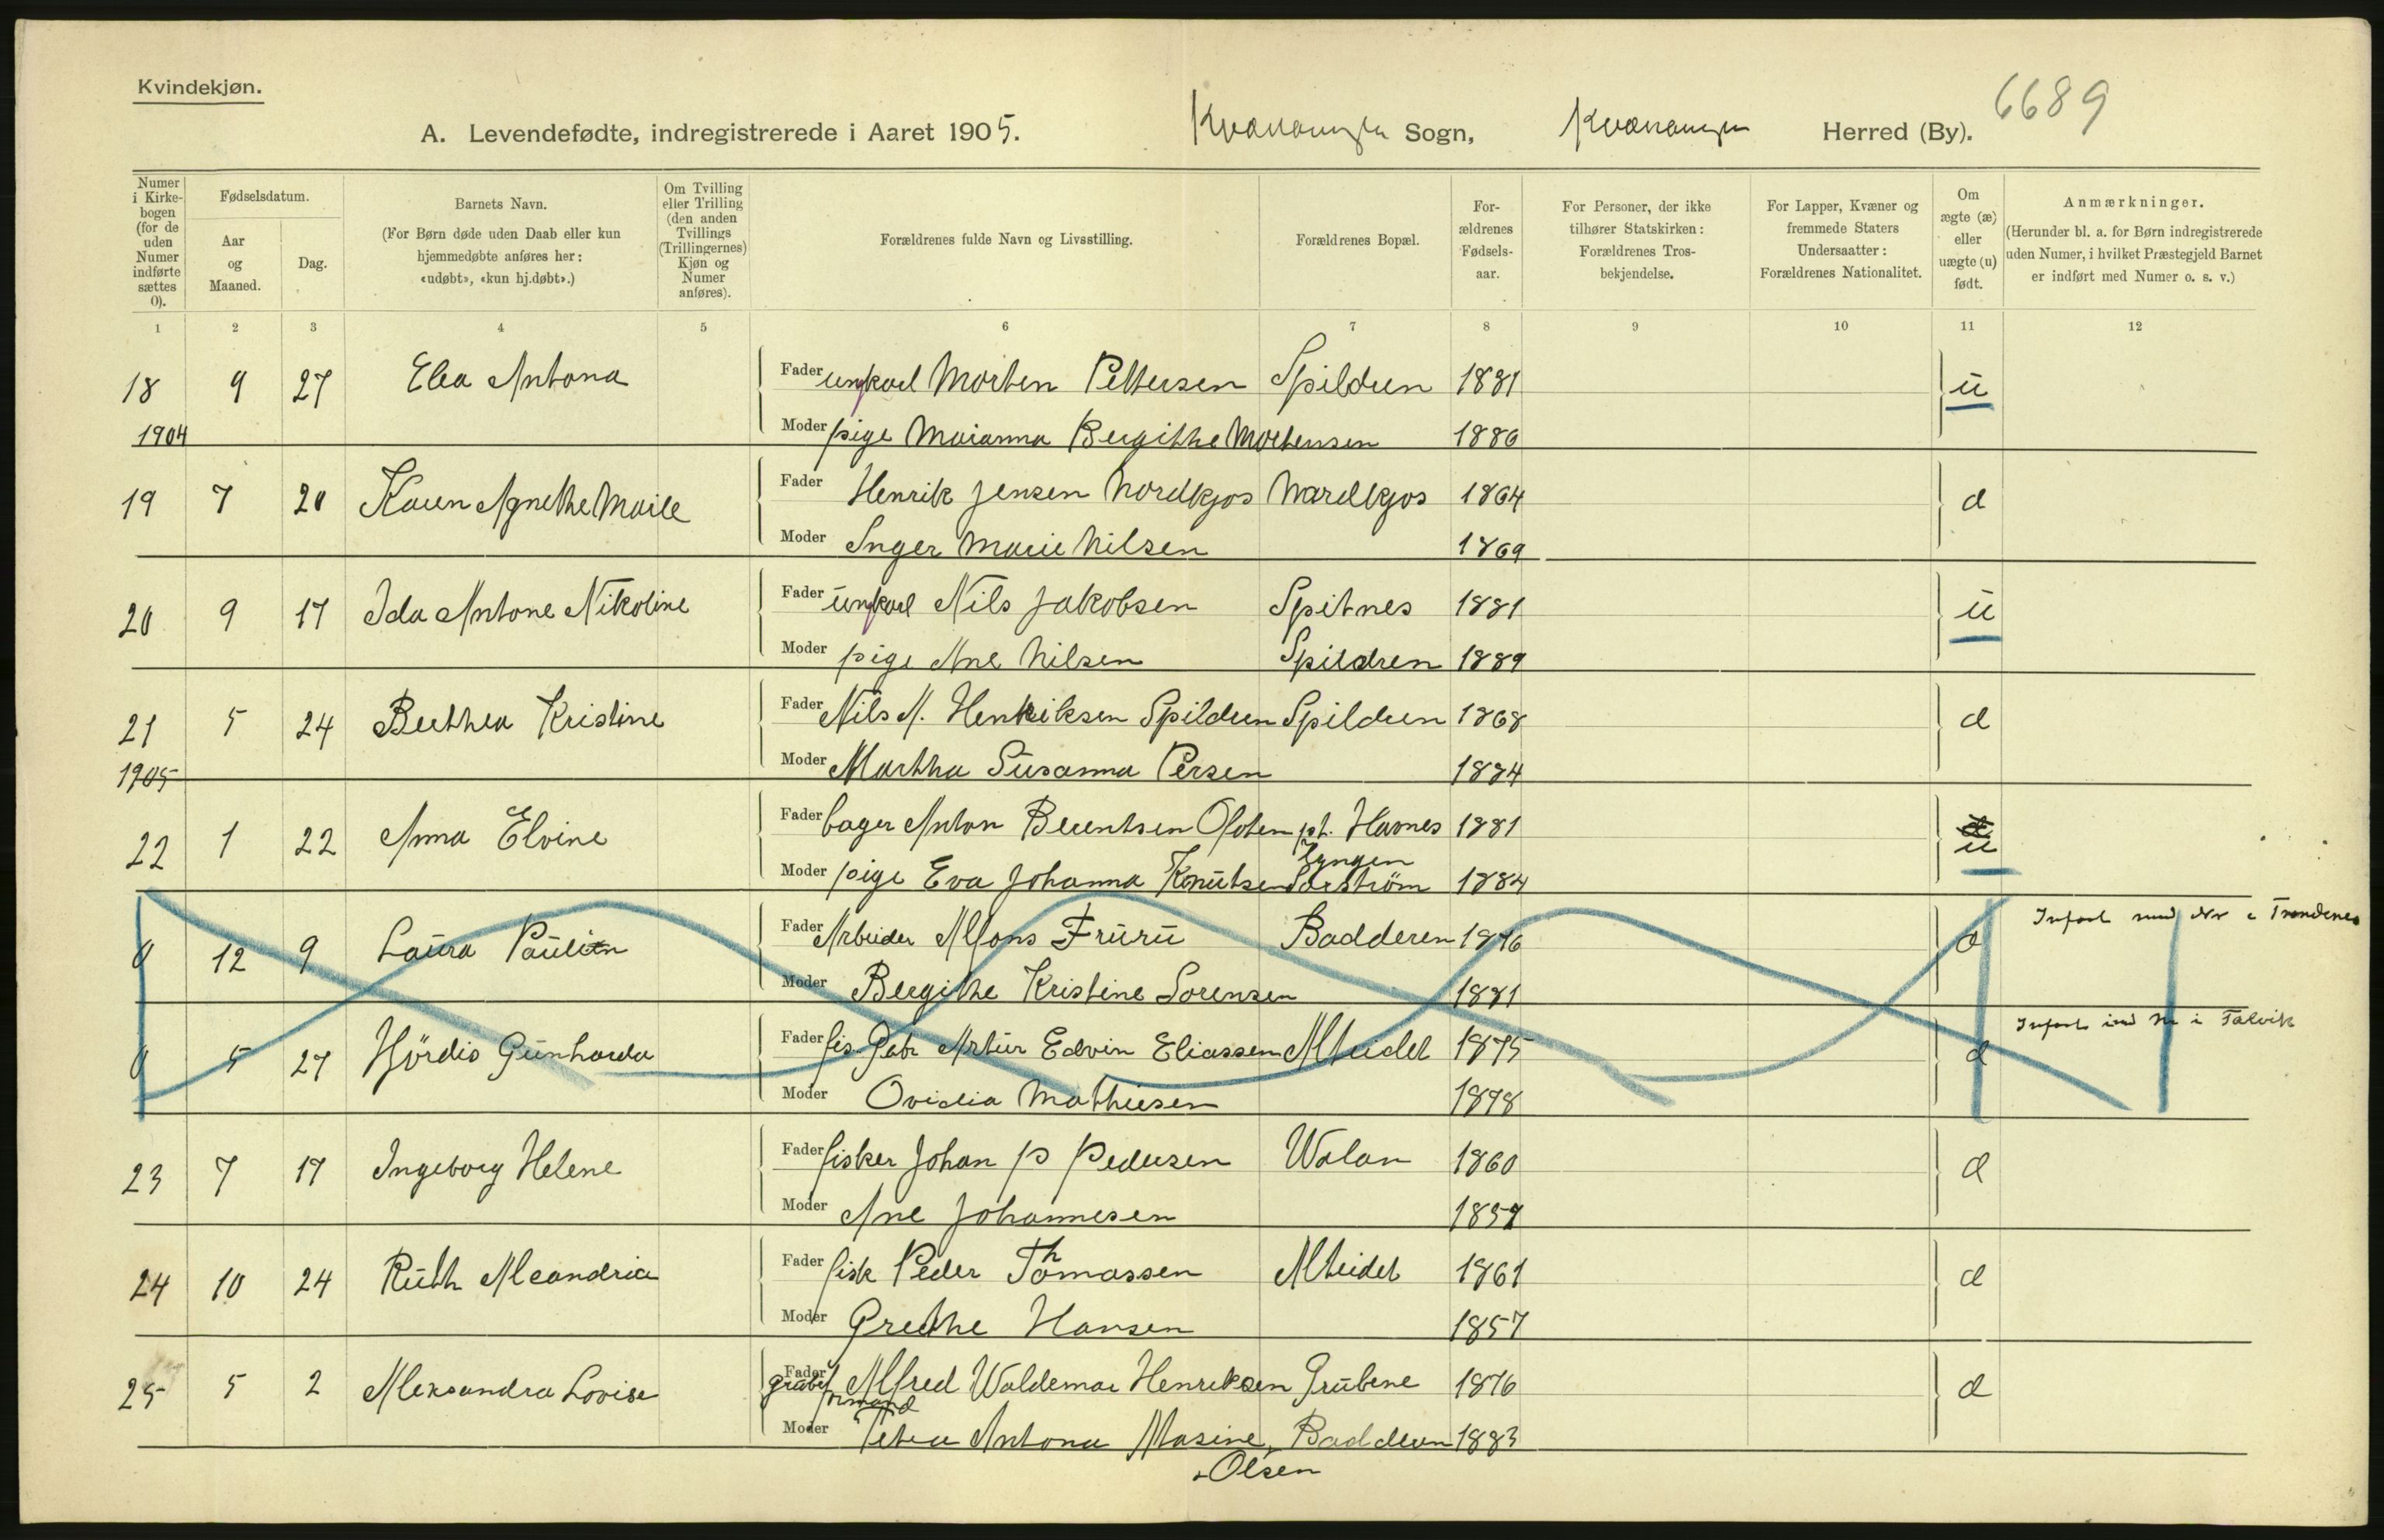 Kvindekjøn.
6689
A. Levendefødte, indregistrerede i Aaret 1905. Kvænangen Sogn, Kvænangen Herred (By).
Numer i Kirke-bogen (for de uden Numer indførte sættes 0).
Fødselsdatum.
Aar og Maaned.
Dag.
Barnets Navn.
(For Børn døde uden Daab eller kun hjemmedøbte anføres her: «udøbt», «kun hj.døbt».)
Om Tvilling eller Trilling (den anden Tvillings (Trillingernes) Kjøn og Numer anføres).
Forældrenes fulde Navn og Livsstilling.
Forældrenes Bopæl.
For-ældrenes Fødsels-aar.
For Personer, der ikke tilhører Statskirken: Forældrenes Tros-bekjendelse.
For Lapper, Kvæner og fremmede Staters Undersaatter: Forældrenes Nationalitet.
Om ægte (æ) eller uægte (u) født.
Anmærkninger.
(Herunder bl. a. for Børn indregistrerede uden Numer, i hvilket Præstegjeld Barnet er indført med Numer o. s. v.)
1 2 3 4 5 6 7 8 9 10 11 12
18 9 27 Elea Antona Fader ungkarl Morten Pettersen Spildren 1881 u
1904 Moder pige Marianna Bergithe Mortensen 1886
19 7 20 Karen Agnethe Marie Fader Henrik Jensen Nordkjos Nordkjos 1864 æ
Moder Inger Marie Nilsen 1869
20 9 17 Ida Antone Nikoline Fader ungkarl Nils Jakobsen Spitnes 1881 u
Moder pige Ane Nilsen Spildren 1889
21 5 24 Berthea Kristine Fader Nils A. Henriksen Spildren Spildren 1868 æ
1905 Moder Martha Susanna Persen 1884
22 1 22 Anna Elvine Fader bager Anton Berentsen Ofoten pt. Havnes Lyngen 1881 u
Moder pige Eva Johanna Knutsen Sørstrøm 1884
0 12 9 Laura Paulin Fader Arbeider Alfons Fruru Badderen 1876 æ Infört med Nr i Trondenes
Moder Bergithe Kristine Sorensen 1881
0 5 27 Hjördis Gunharda Fader fis. Gabr Artur Edvin Eliassen Alteidet 1875 æ Infört med Nr i Talvik
Moder Ovidia Mathiesen 1878
23 7 17 Ingeborg Helene Fader fisker Johan P Pedersen Valan 1860 æ
Moder Ane Johannesen 1857
24 10 24 Ruth Aleandria Fader fisk Peder Thomassen Alteidet 1861 æ
Moder Grethe Hansen 1857
25 5 2 Aleksandra Lovise Fader grubeformand Alfred Valdemar Henriksen Grubene 1876 æ
Moder Petra Antona Masine Badderen 1883
Olsen